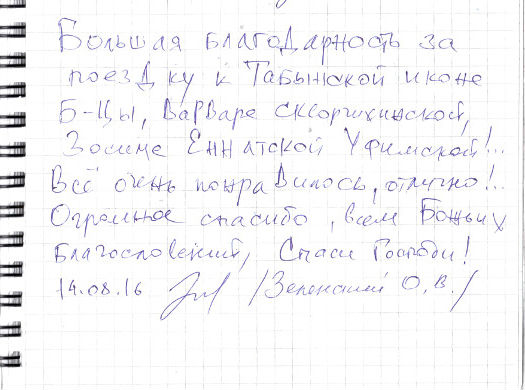 Большая благодарность за
поездку к Табынской иконе
Б-цы, Варваре Скворчихинской,
Зосиме Еннатской Уфимской!..
Всё очень понравилось, отлично!..
Огромное спасибо, всем Божьих
Благословений, Спаси Господи!
14.08.16 /Зеленский О.В./